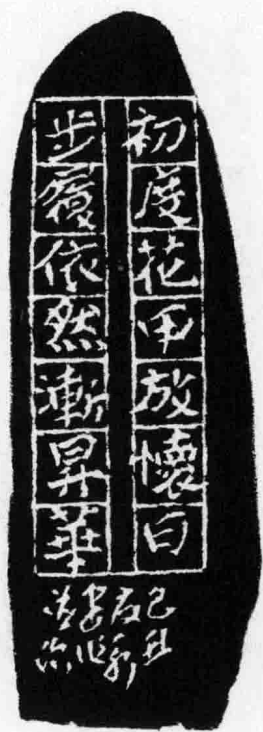 初度花甲放懷白
步履依然漸昇華
己丑